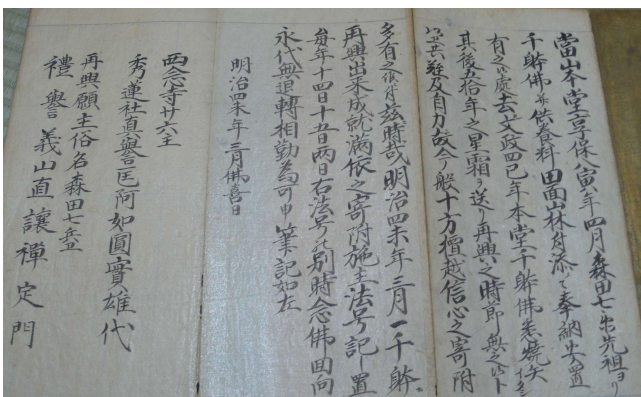 當山本堂享保八寅年四月森田七兵衛先祖ヨリ
千躰佛并供養料田面山林相添て奉納安置
有之候處去文政四巳年本堂千躰佛悉焼失
其後五拾年之星霜ヲ送り再興之時節無之
及自力故今般十方檀越信心之寄附
多有之 時哉明治四未年三月一千躰
再興出来成就満依之寄附施主法号記シ置
毎年十四日十五日両日右法号 別時念佛回向
永代無退轉相勤為可申筆記如左
明治四未年三月佛喜日
西念寺廿六主
秀蓮社真譽匡阿如圓實雄代
再興願主俗名森田七兵衛
禮譽義山直讓禪定門